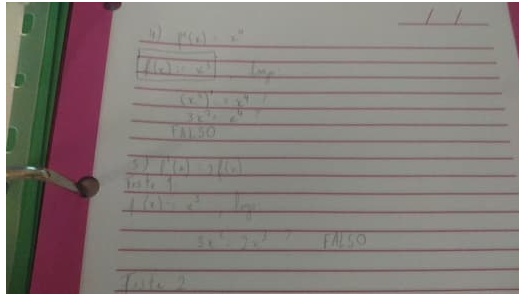 4) f'(x) = x⁴
f(x) = x³, logo:
(x³)' = x⁴ ?
3x² = x⁴ ?
FALSO
5) f'(x) = 2f(x)
Teste 1
f(x) = x³, logo:
3x² = 2x³ ? FALSO
Teste 2